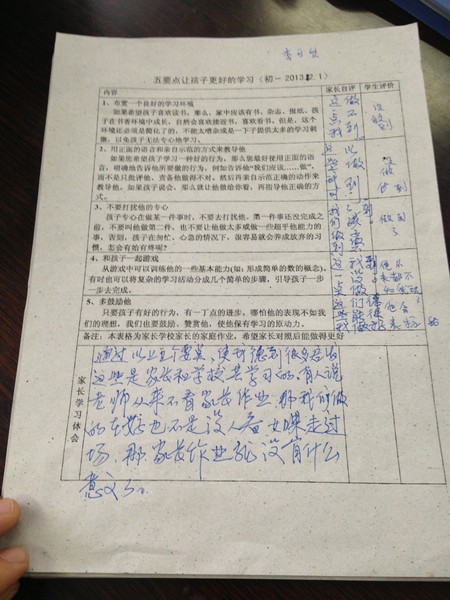 五要点让孩子更好的学习（初一 2013.12.1）
内容 家长自评 学生评价
1、布置一个良好的学习环境
如果希望孩子喜欢读书，那么，家中应该有书、杂志、报纸，孩
子在书香环境中成长，自然会喜欢接近书，喜欢看书。但是，这个
环境还必须是简化了的，不能太嘈杂或是一下子提供太多的学习刺
激，以免孩子无法专心地学习。
这一点做不到
没做到
2、用正面的语言和亲自示范的方式来教导他
如果您希望孩子学习一种好的行为，那么您最好使用正面的语
言，明确地告诉他所要做的行为，例如告诉他"我们应该……做"，
而不是只批评他、责备他做得不对，然后再亲自示范正确的动作来
教导他。如果孩子说会，那么就让他做给你看，再指导他正确的方
式。
3、不要打扰他的专心
孩子专心在做某一件事时，不要去打扰他。第一件事还没完成之
前，不要叫他做第二件，也不要让他做太多或做一些超乎他能力的
事，否则，孩子在匆忙、心急的情况下，很容易就会养成放弃的习
惯，怎会有始有终呢？
做到了
4、和孩子一起游戏
从游戏中可以训练他的一些基本能力（如：形成简单的数的概念），
有时也可以将复杂的学习活动分成几个简单的步骤，引导孩子一步
一步去完成。
5、多鼓励他
只要孩子有好的行为，有一丁点的进步，哪怕他的表现不如我
们的理想，我们也要鼓励、赞赏他，使他保有学习的原动力。
备注：本表格为家长学校家长的家庭作业，希望家长对照后能做得更好
家长学习体会
通过以上五个要点，使我德到很多启发
这些是家长和学校共学习的，有人说
老师从来不看家长作业，那我们做
的在好也不是没人看
过场，那家长作业就没有什么
意义了。